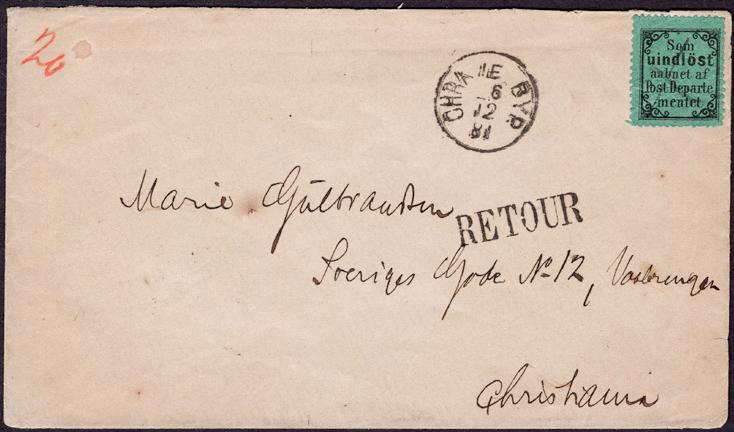 20
CHRA IE BYP
6
12
81
Som
uindlöst
aabnet af
Post Departe
mentet
Marie Gulbrandsen
RETOUR
Sveriges Gade No 12, Vaalerengen
Christiania